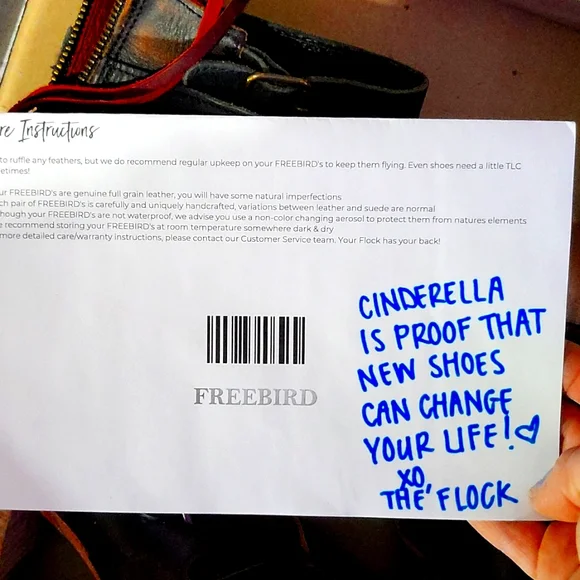 re Instructions
to ruffle any feathers, but we do recommend regular upkeep on your FREEBIRD's to keep them flying. Even shoes need a little TLC
etimes!
ur FREEBIRD's are genuine full grain leather, you will have some natural imperfections
ch pair of FREEBIRD's is carefully and uniquely handcrafted, variations between leather and suede are normal
though your FREEBIRD's are not waterproof, we advise you use a non-color changing aerosol to protect them from natures elements
e recommend storing your FREEBIRD's at room temperature somewhere dark & dry
more detailed care/warranty instructions, please contact our Customer Service team. Your Flock has your back!
FREEBIRD
CINDERELLA
IS PROOF THAT
NEW SHOES
CAN CHANGE
YOUR LIFE!♡
XO,
THE FLOCK